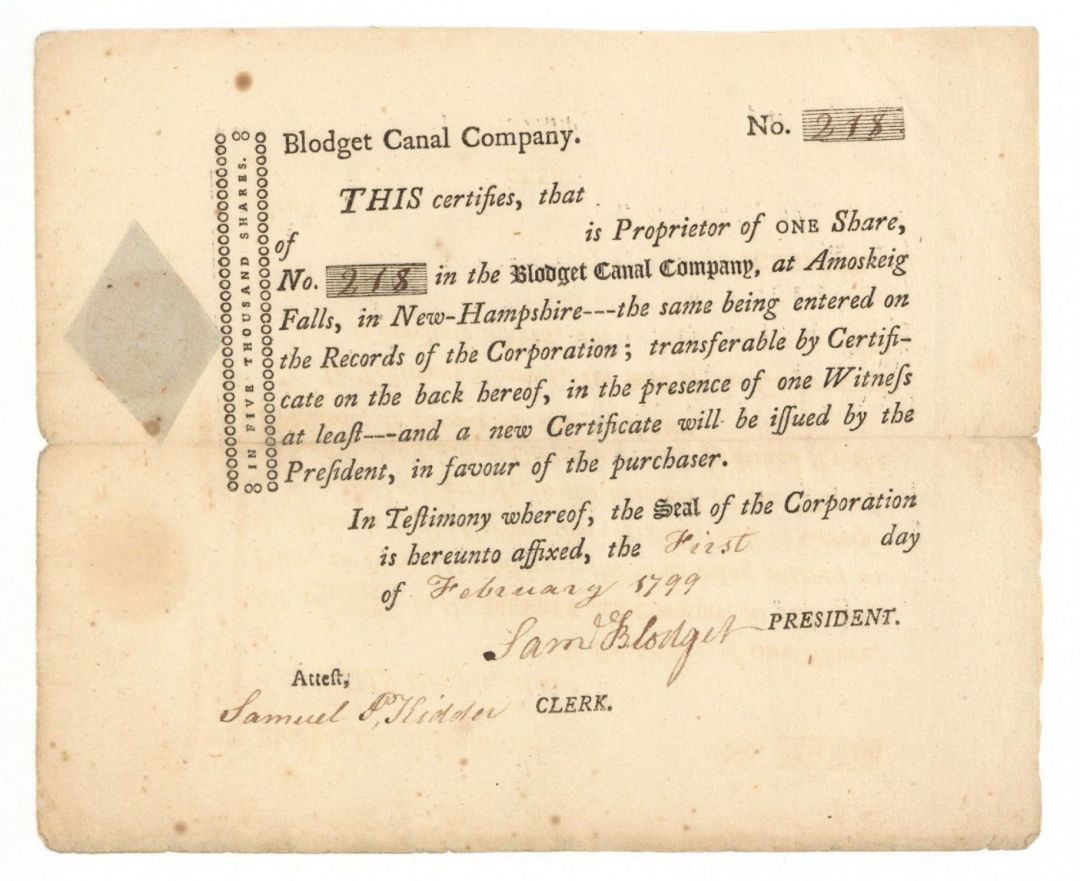 Blodget Canal Company.
No. 218
IN FIVE THOUSAND SHARES.
THIS certifies, that
of is Proprietor of ONE Share,
No. 218 in the Blodget Canal Company, at Amoskeig
Falls, in New-Hampshire---the same being entered on
the Records of the Corporation; transferable by Certifi-
cate on the back hereof, in the presence of one Witneſs
at leaſt---and a new Certificate will be iſſued by the
Preſident, in favour of the purchaser.
In Teſtimony whereof, the Seal of the Corporation
is hereunto affixed, the First day
of February 1799
Samˡ Blodget PRESIDENT.
Atteſt,
Samuel P. Kidder CLERK.